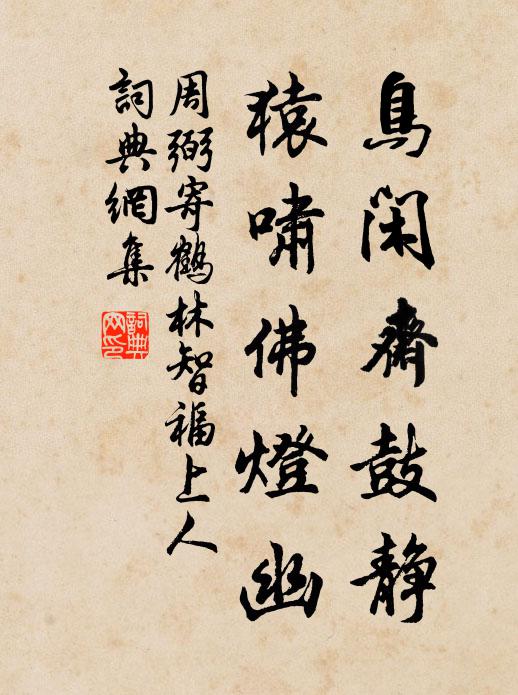 鳥閑齋鼓靜
猿嘯佛燈幽
周弼寄鶴林智福上人
詞典網集
詞典
网印